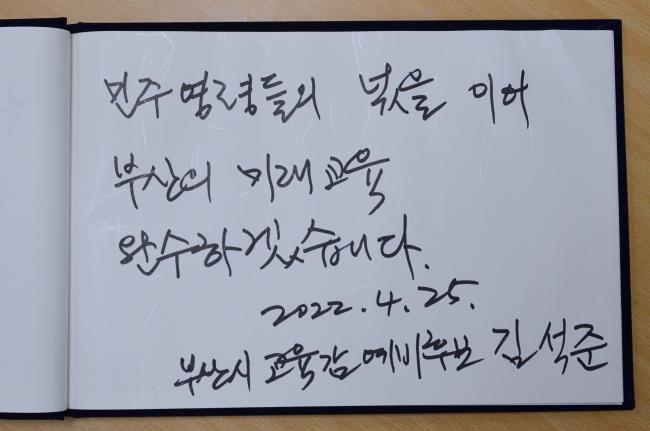 민주영령들의 넋을 이어
부산의 미래교육
완수하겠습니다.
2022. 4. 25.
부산시 교육감 예비후보 김석준